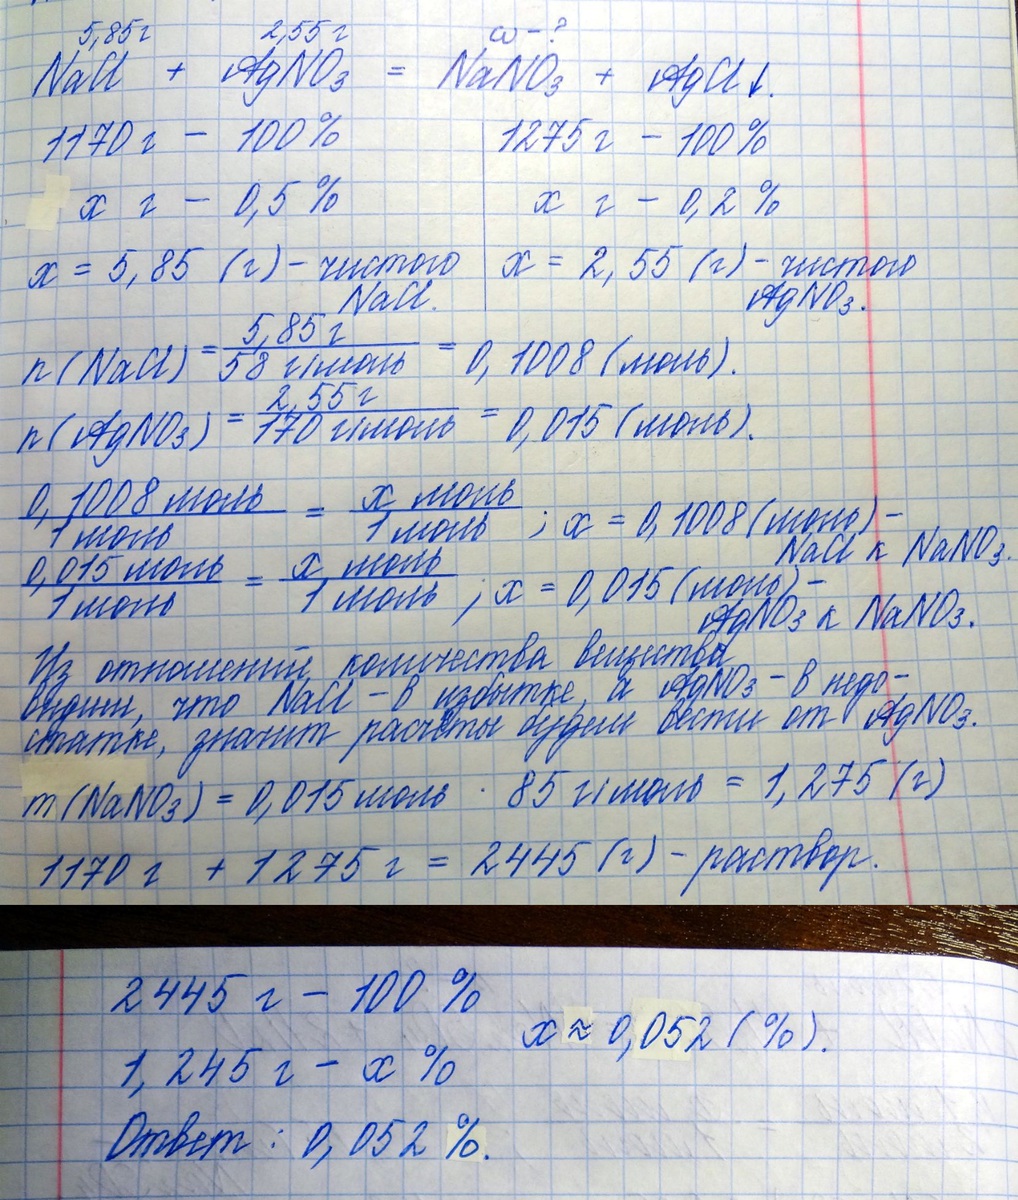 5,85г 2,55г ω-?
NaCl + AgNO3 = NaNO3 + AgCl↓.
1170 г - 100% 1275 г - 100%
x г - 0,5% x г - 0,2%
x = 5,85 (г) - чистого x = 2,55 (г) - чистого
NaCl. AgNO3.
n(NaCl) = 5,85 г / 58 г/моль = 0,1008 (моль).
n(AgNO3) = 2,55 г / 170 г/моль = 0,015 (моль).
0,1008 моль / 1 моль = x моль / 1 моль ; x = 0,1008 (моль) -
NaCl к NaNO3.
0,015 моль / 1 моль = x моль / 1 моль ; x = 0,015 (моль) -
AgNO3 к NaNO3.
Из отношений количества вещества
видим, что NaCl - в избытке, а AgNO3 - в недо-
статке, значит расчёты будем вести от AgNO3.
m(NaNO3) = 0,015 моль · 85 г/моль = 1,275 (г)
1170 г + 1275 г = 2445 (г) - раствор.
2445 г - 100 %
x ≈ 0,052 (%).
1,245 г - x %
Ответ: 0,052 %.